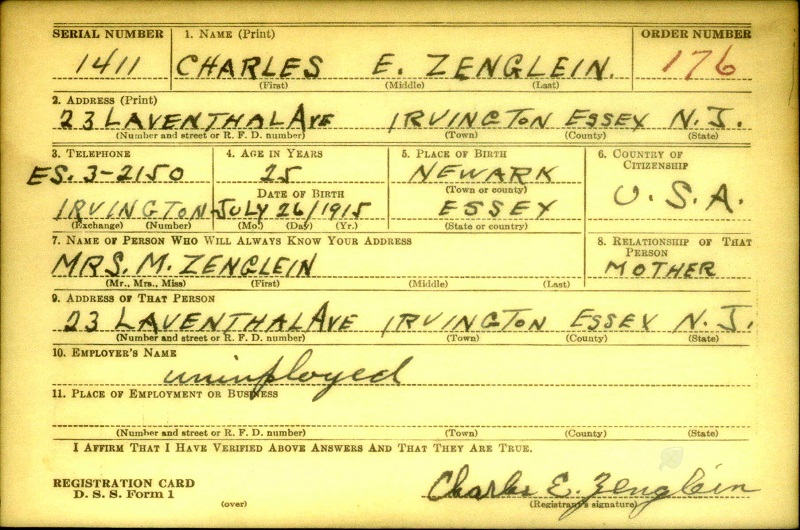 SERIAL NUMBER 1. NAME (Print) ORDER NUMBER
1411 CHARLES E. ZENGLEIN. 176
(First) (Middle) (Last)
2. ADDRESS (Print)
23 LAVENTHAL AVE IRVINGTON ESSEX N.J.
(Number and street or R. F. D. number) (Town) (County) (State)
3. TELEPHONE 4. AGE IN YEARS 5. PLACE OF BIRTH 6. COUNTRY OF CITIZENSHIP
ES. 3-2150 25 NEWARK
DATE OF BIRTH (Town or county) U.S.A.
IRVINGTON JULY 26/1915 ESSEX
(Exchange) (Number) (Mo.) (Day) (Yr.) (State or country)
7. NAME OF PERSON WHO WILL ALWAYS KNOW YOUR ADDRESS 8. RELATIONSHIP OF THAT PERSON
MRS. M. ZENGLEIN MOTHER
(Mr., Mrs., Miss) (First) (Middle) (Last)
9. ADDRESS OF THAT PERSON
23 LAVENTHAL AVE IRVINGTON ESSEX N.J.
(Number and street or R. F. D. number) (Town) (County) (State)
10. EMPLOYER'S NAME
uninployed
11. PLACE OF EMPLOYMENT OR BUSINESS
(Number and street or R. F. D. number) (Town) (County) (State)
I AFFIRM THAT I HAVE VERIFIED ABOVE ANSWERS AND THAT THEY ARE TRUE.
REGISTRATION CARD
D. S. S. Form 1 Charles E. Zenglein
(over) (Registrant's signature)